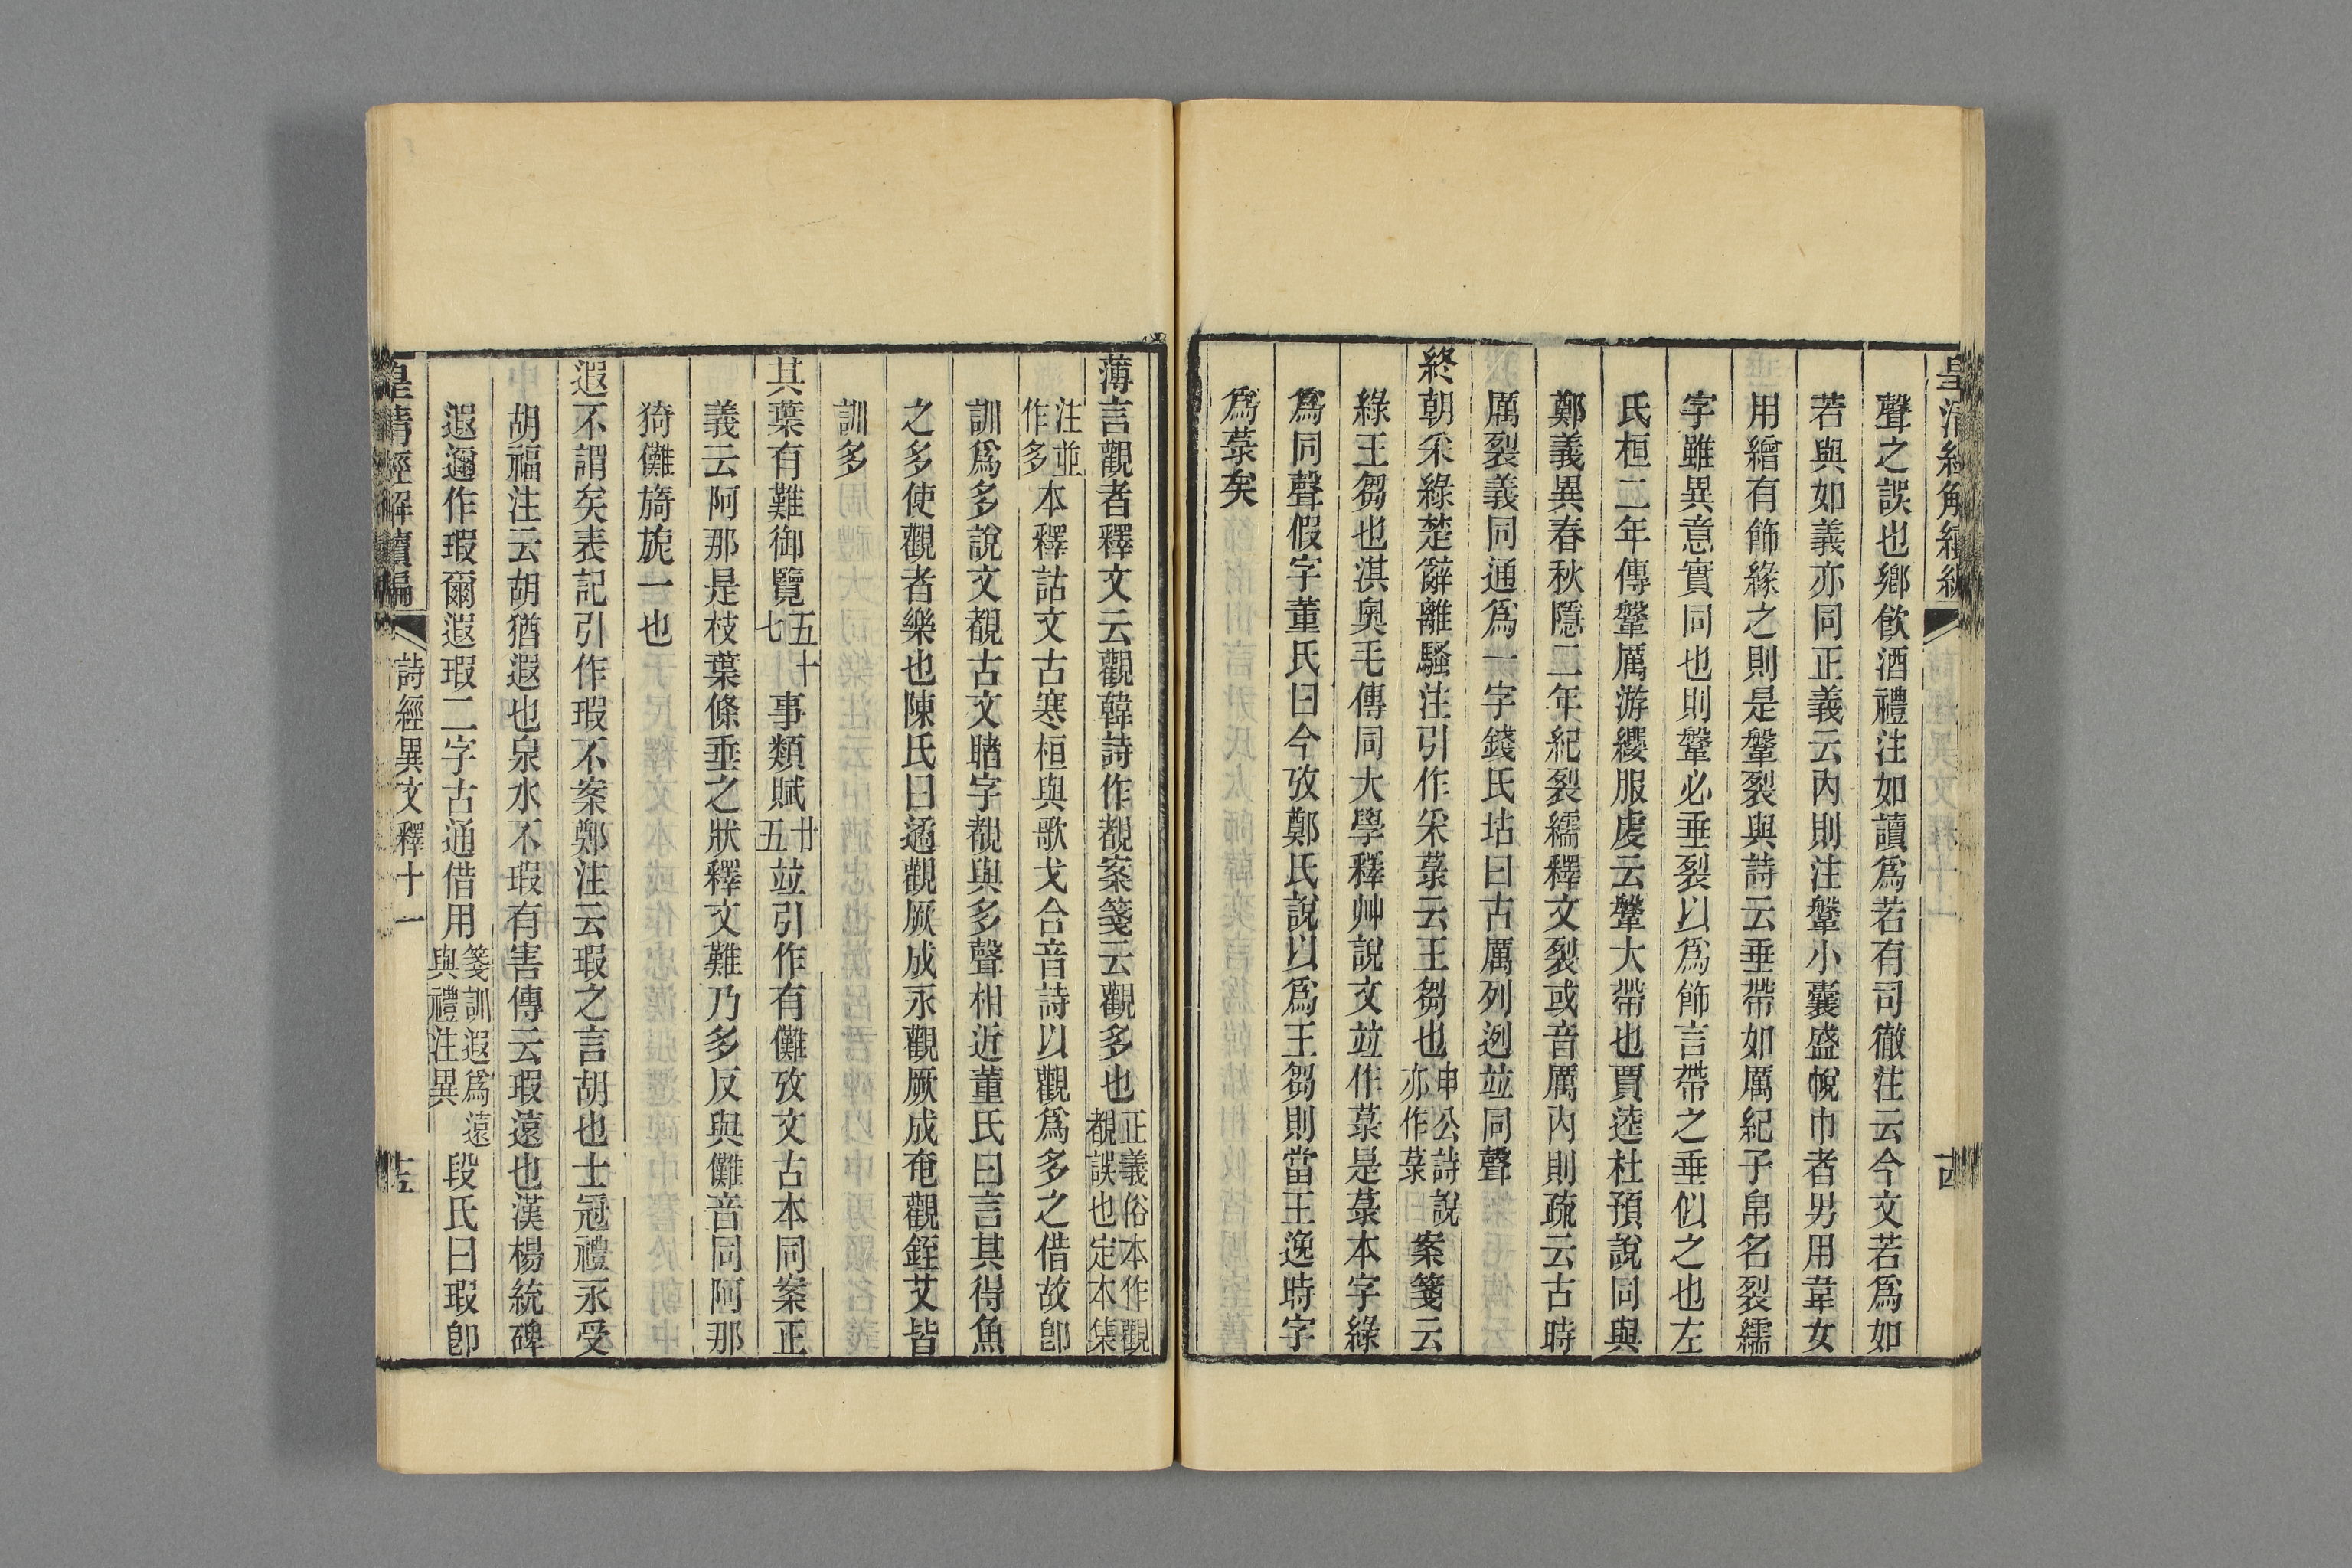 皇清經解續編
聲之誤也鄉飮酒禮注如讀爲若有司徹注云今文若爲如
若與如義亦同正義云內則注鞶小囊盛帨巾者男用韋女
用繒有飾緣之則是鞶裂與詩云垂帶如厲紀子帛名裂繻
字雖異意實同也則鞶必垂裂以爲飾言帶之垂似之也左
氏桓二年傳鞶厲游纓服虔云鞶大帶也賈逵杜預說同與
鄭義異春秋隱二年紀裂繻釋文裂或音厲內則疏云古時
厲裂義同通爲一字錢氏坫曰古厲列迾竝同聲
終朝采綠楚辭離騷注引作采菉云王芻也申公詩說亦作菉案箋云
綠王芻也淇奧毛傳同大學釋艸說文竝作菉是菉本字綠
爲同聲假字董氏曰今攷鄭氏說以爲王芻則當王逸時字
爲菉矣
薄言觀者釋文云觀韓詩作覩案箋云觀多也正義俗本作觀覩誤也定本集
注並作多本釋詁文古寒桓與歌戈合音詩以觀爲多之借故卽
訓爲多說文覩古文睹字覩與多聲相近董氏曰言其得魚
之多使觀者樂也陳氏曰遹觀厥成永觀厥成奄觀銍艾皆
訓多
其葉有難御覽五十七事類賦廿五竝引作有儺攷文古本同案正
義云阿那是枝葉條垂之狀釋文難乃多反與儺音同阿那
猗儺旖旎一也
遐不謂矣表記引作瑕不案鄭注云瑕之言胡也士冠禮永受
胡福注云胡猶遐也泉水不瑕有害傳云瑕遠也漢楊統碑
遐邇作瑕爾遐瑕二字古通借用箋訓遐爲遠與禮注異段氏曰瑕卽
皇清經解續編
詩經異文釋十一